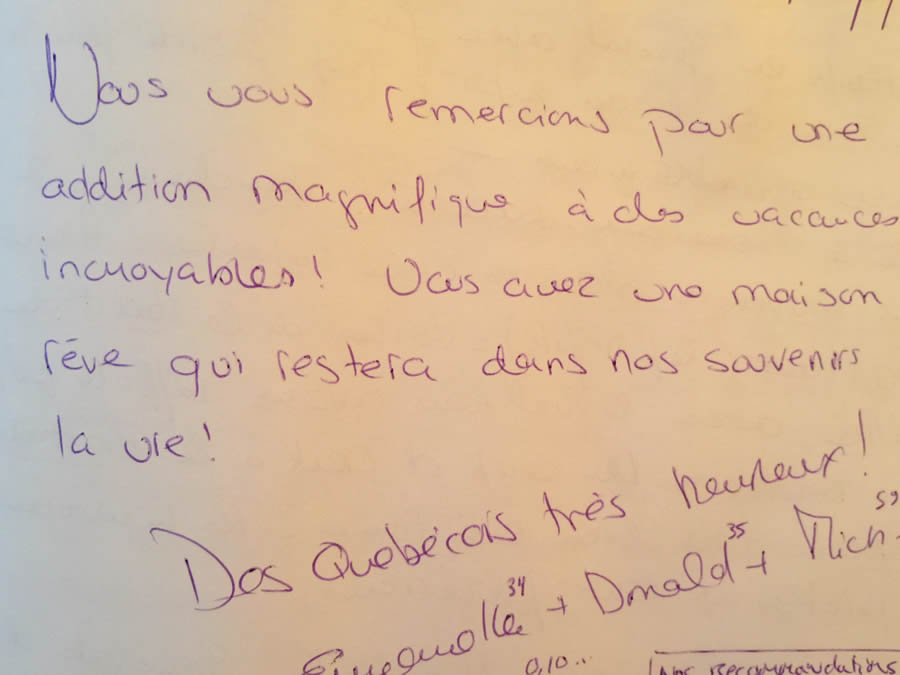 Nous vous remercions pour une
addition magnifique à des vacances
incroyables! Vous avez une maison
rêve qui restera dans nos souvenirs
la vie!
Des Québécois très heureux!
34 35
+ Donald +
0,10..
Nos recommandations